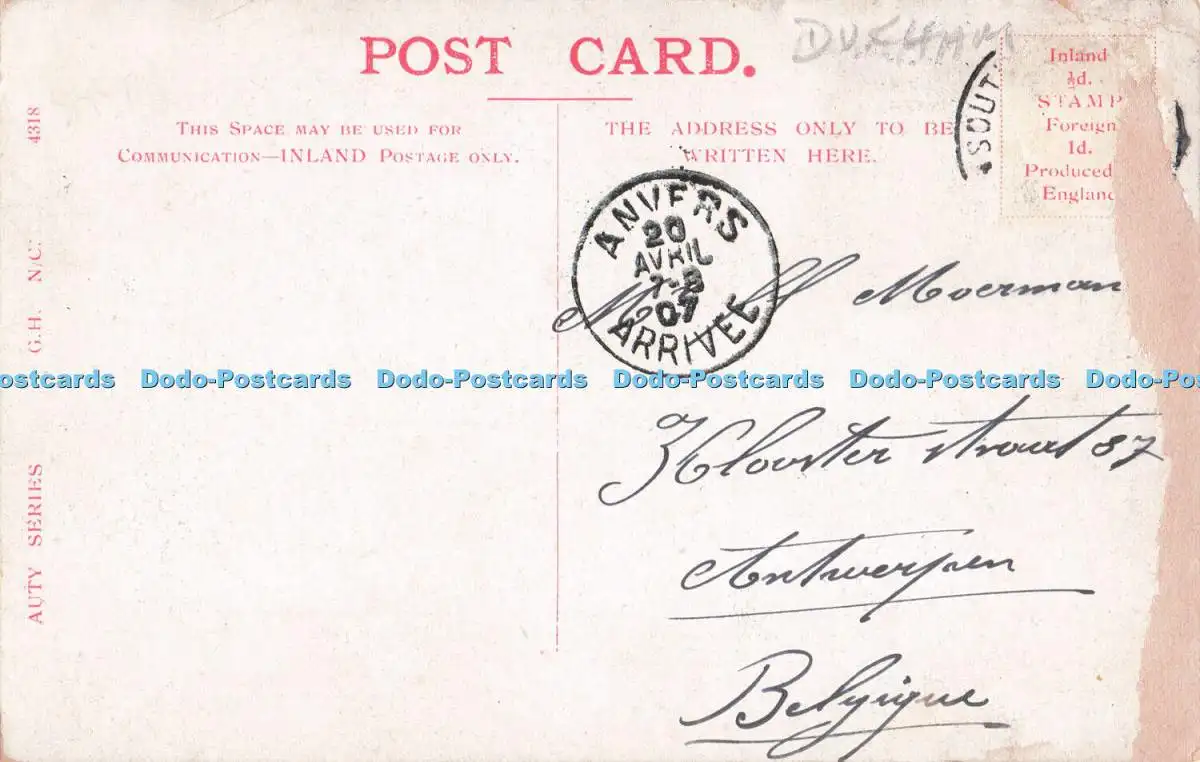 POST CARD.
DURHAM
THIS SPACE MAY BE USED FOR
COMMUNICATION—INLAND POSTAGE ONLY.
THE ADDRESS ONLY TO BE
WRITTEN HERE.
Inland
½d.
STAMP
Foreign
1d.
Produced
England
SOUT
ANVERS
20
AVRIL
7-8
07
ARRIVEE
Moerman
Klooster straat 87
Antwerpen
Belgique
AUTY SERIES G.H. N/C. 4318
ostcards Dodo-Postcards Dodo-Postcards Dodo-Postcards Dodo-Postcards Dodo-Pos